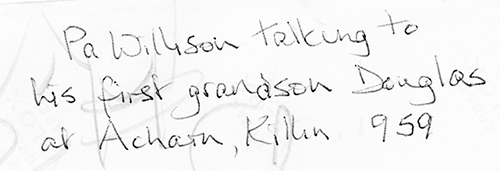 Pa Willison talking to
his first grandson Douglas
at Achain, Killin 959